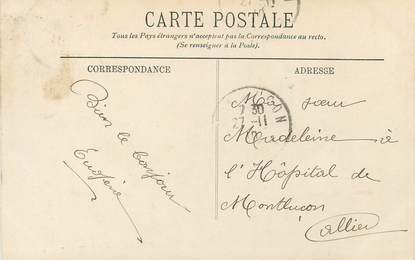 CARTE POSTALE
Tous les Pays étrangers n'acceptent pas la Correspondance au recto.
(Se renseigner à la Poste).
CORRESPONDANCE
Bien le bonjour
Eugénie
ADRESSE
7 30
27-11
Ma sœur
Madeleine à
l'Hôpital de
Montluçon
Allier